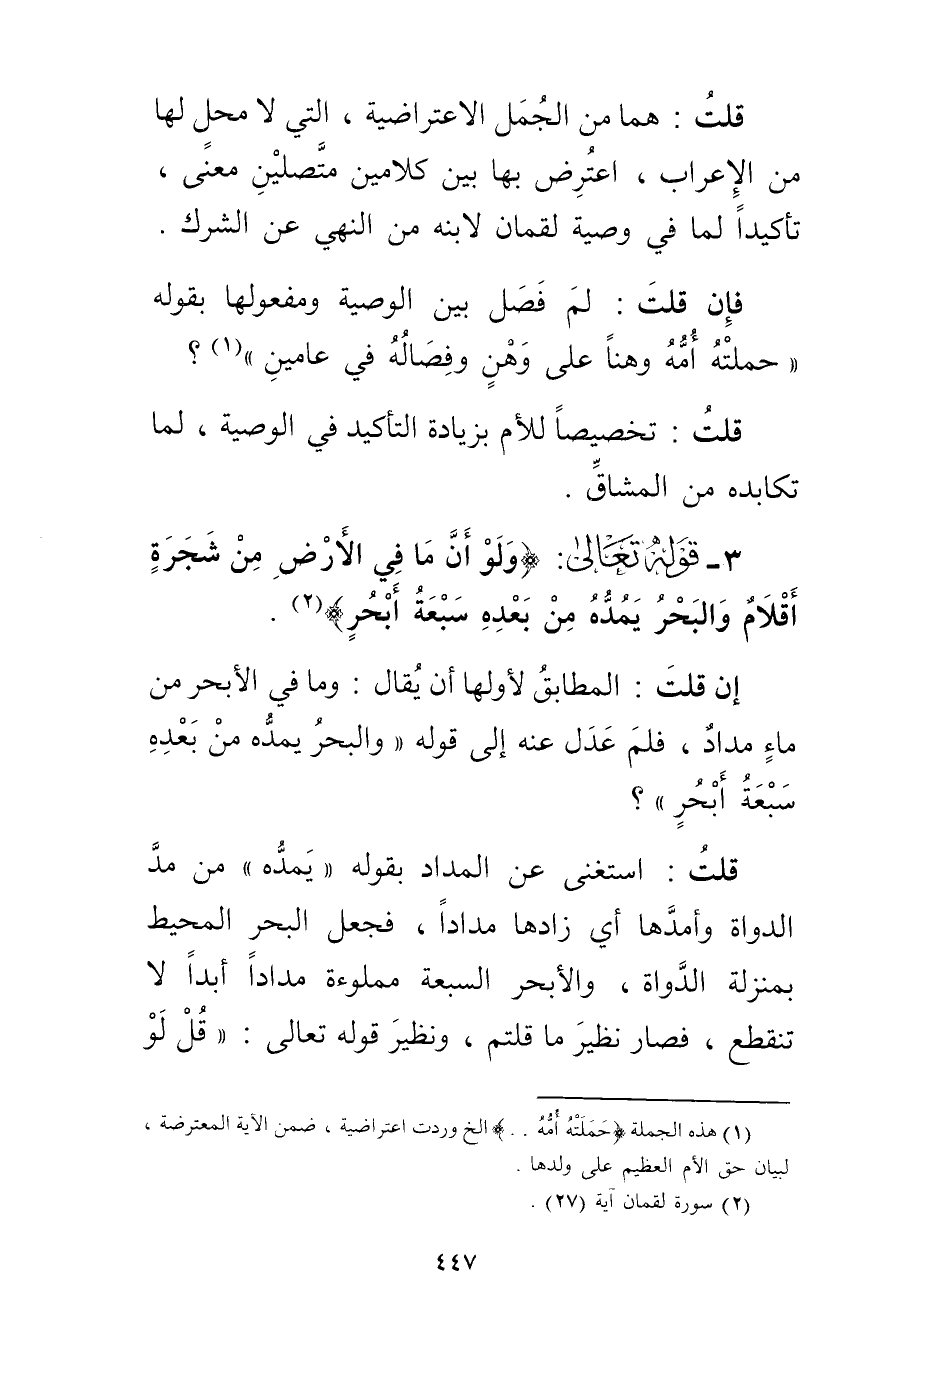 قلتُ : هما من الجُمَل الاعتراضية ، التي لا محل لها
من الإِعراب ، اعتُرِض بها بين كلامين متَّصليْنِ معنًى ،
تأكيداً لما في وصية لقمان لابنه من النهي عن الشرك .
فإِن قلتَ : لمَ فَصَل بين الوصية ومفعولها بقوله
« حملتْهُ أُمُّهُ وهناً على وَهْنٍ وفِصَالُهُ في عامينِ »(١) ؟
قلتُ : تخصيصاً للأم بزيادة التأكيد في الوصية ، لما
تكابده من المشاقِّ .
٣ ـ قَوْلُهُ تَعَالَىٰ: ﴿وَلَوْ أَنَّ مَا فِي الأَرْضِ مِنْ شَجَرَةٍ
أَقْلَامٌ وَالبَحْرُ يَمُدُّهُ مِنْ بَعْدِهِ سَبْعَةُ أَبْحُرٍ﴾(٢) .
إن قلتَ : المطابقُ لأولها أن يُقال : وما في الأبحر من
ماءٍ مدادٌ ، فلمَ عَدَل عنه إلى قوله « والبحرُ يمدُّه منْ بَعْدِهِ
سَبْعَةُ أَبْحُرٍ » ؟
قلتُ : استغنى عن المداد بقوله « يَمدُّه » من مدَّ
الدواة وأمدَّها أي زادها مداداً ، فجعل البحر المحيط
بمنزلة الدَّواة ، والأبحر السبعة مملوءة مداداً أبداً لا
تنقطع ، فصار نظيرَ ما قلتم ، ونظيرَ قوله تعالى : « قُلْ لَوْ
(١) هذه الجملة ﴿حَمَلَتْهُ أُمُّهُ . .﴾ الخ وردت اعتراضية ، ضمن الآية المعترضة ،
لبيان حق الأم العظيم على ولدها .
(٢) سورة لقمان آية (٢٧) .
٤٤٧